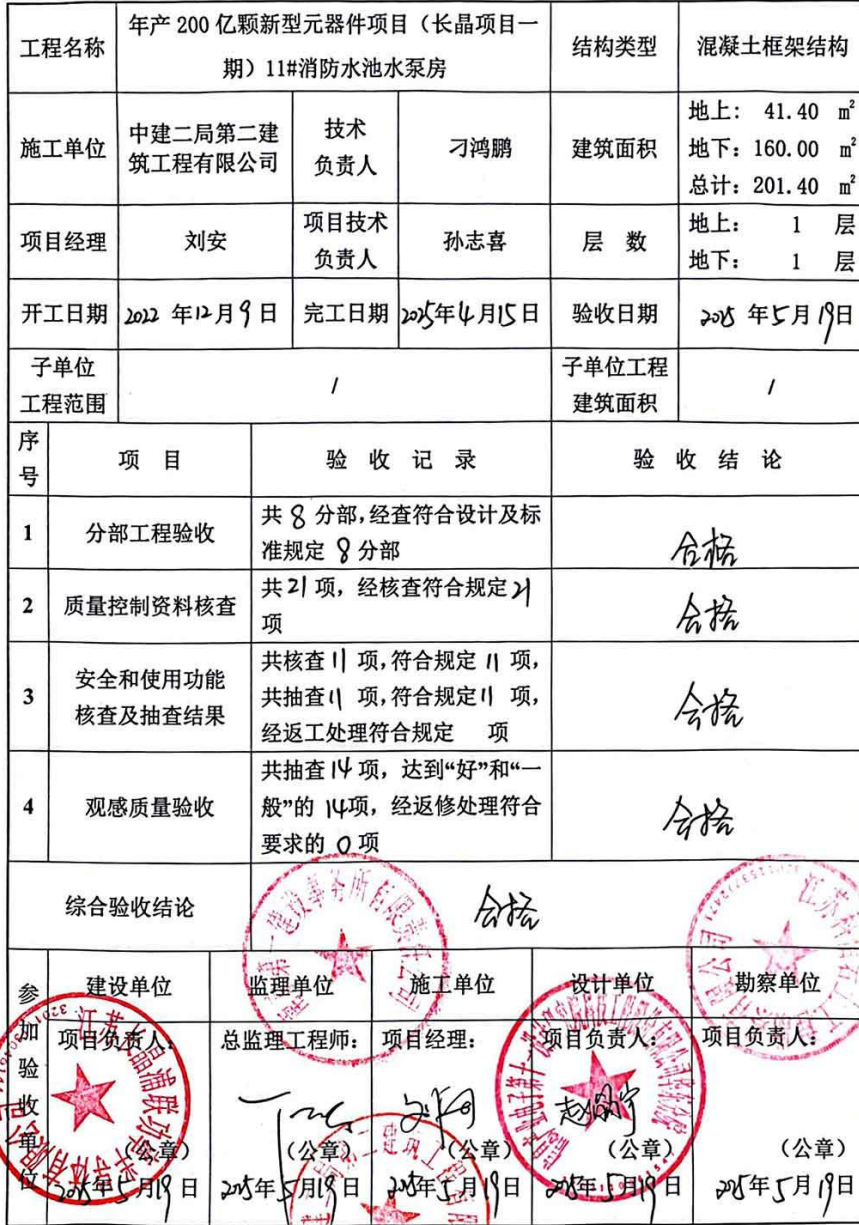 工程名称 年产 200 亿颗新型元器件项目（长晶项目一期）11#消防水池水泵房 结构类型 混凝土框架结构
施工单位 中建二局第二建筑工程有限公司 技术负责人 刁鸿鹏 建筑面积 地上: 41.40 m²
地下: 160.00 m²
总计: 201.40 m²
项目经理 刘安 项目技术负责人 孙志喜 层 数 地上: 1 层
地下: 1 层
开工日期 2022 年12月9日 完工日期 2025年4月15日 验收日期 2025 年5月19日
子单位工程范围 / 子单位工程建筑面积 /
序号 项 目 验 收 记 录 验 收 结 论
1 分部工程验收 共 8 分部,经查符合设计及标
准规定 8 分部 合格
2 质量控制资料核查 共21项，经核查符合规定21
项 合格
3 安全和使用功能
核查及抽查结果 共核查11项,符合规定11项，
共抽查11项,符合规定11项，
经返工处理符合规定 项 合格
4 观感质量验收 共抽查14项，达到“好”和“一
般”的 14项，经返修处理符合
要求的 0项 合格
综合验收结论 合格
参加验收单位
建设单位 监理单位 施工单位 设计单位 勘察单位
项目负责人: 总监理工程师: 项目经理: 项目负责人: 项目负责人:
(公章) (公章) (公章) (公章) (公章)
2025年5月19日 2025年5月19日 2025年5月19日 2025年5月19日 2025年5月19日